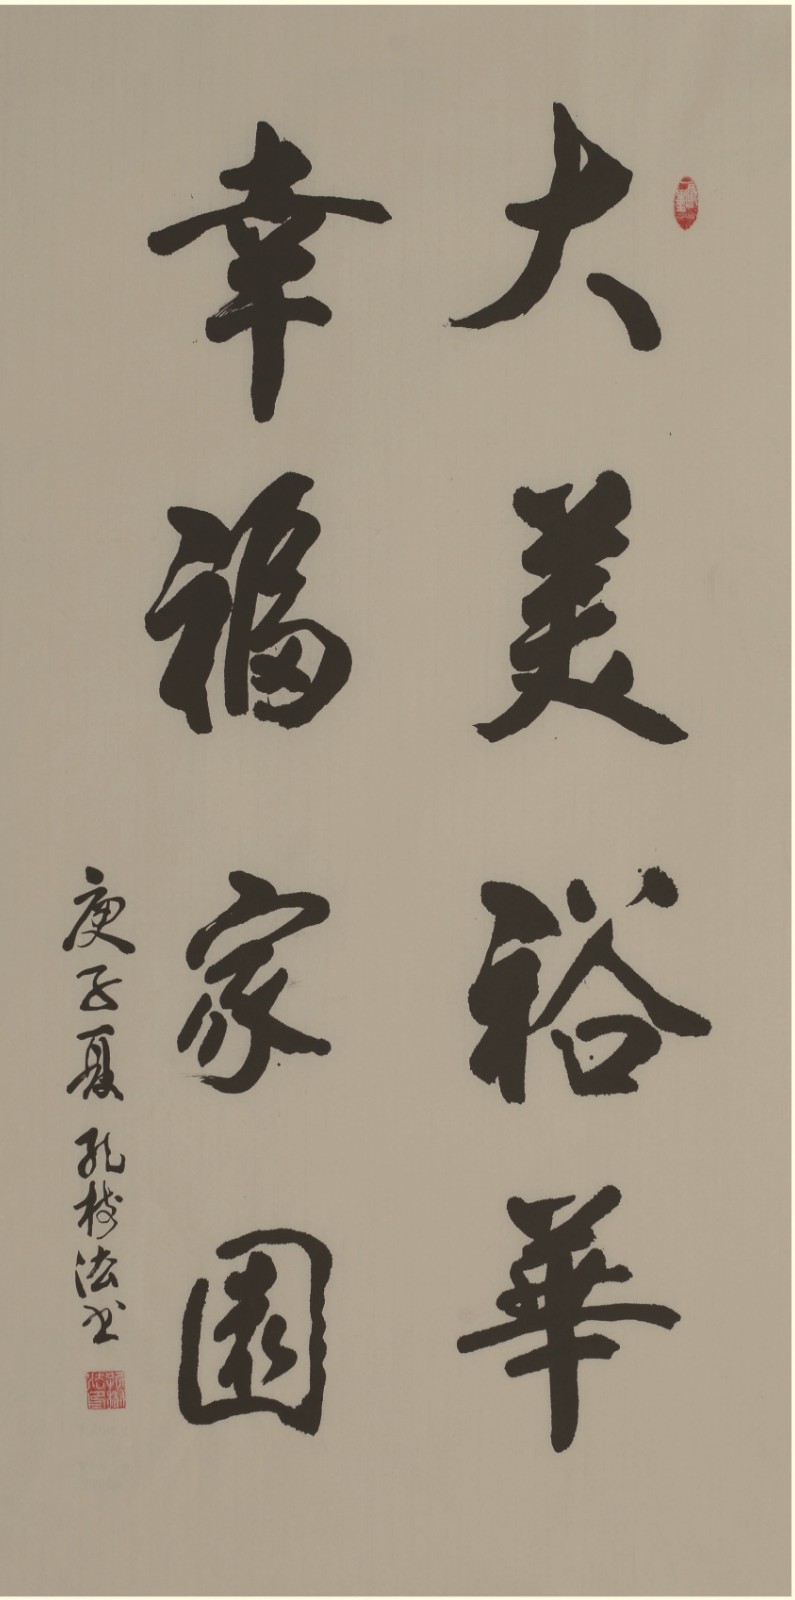 大美裕華
幸福家園
庚子夏 孔樹法书